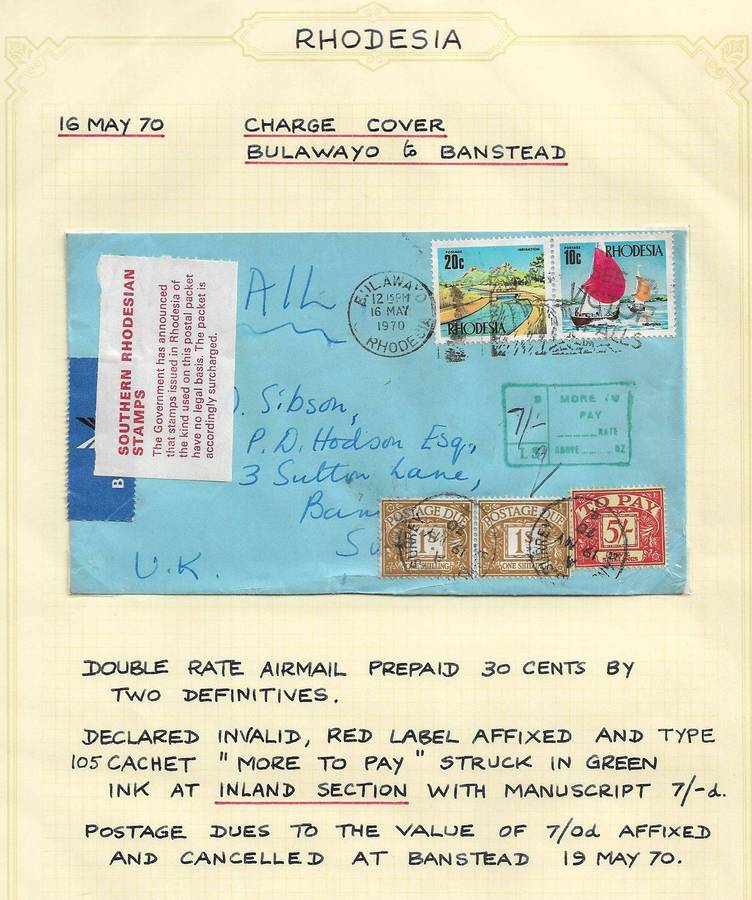 RHODESIA
16 MAY 70
CHARGE COVER
BULAWAYO to BANSTEAD
SOUTHERN RHODESIAN
STAMPS
The Government has announced
that stamps issued in Rhodesia of
the kind used on this postal packet
have no legal basis. The packet is
accordingly surcharged.
AIL
BULAWAYO
12 15PM
16 MAY
1970
RHODESIA
POSTAGE
20c
IRRIGATION
RHODESIA
POSTAGE
10c
RHODESIA
MORE TO
PAY
RATE
ABOVE OZ
7/-
Sibson,
P.D. Hodson Esq.,
3 Sutton Lane,
Ban
U.K.
B
POSTAGE DUE
ONE SHILLING
POSTAGE DUE
1s
ONE SHILLING
TO PAY
5/-
DOUBLE RATE AIRMAIL PREPAID 30 CENTS BY
TWO DEFINITIVES.
DECLARED INVALID, RED LABEL AFFIXED AND TYPE
105 CACHET "MORE TO PAY" STRUCK IN GREEN
INK AT INLAND SECTION WITH MANUSCRIPT 7/-d.
POSTAGE DUES TO THE VALUE OF 7/0d AFFIXED
AND CANCELLED AT BANSTEAD 19 MAY 70.